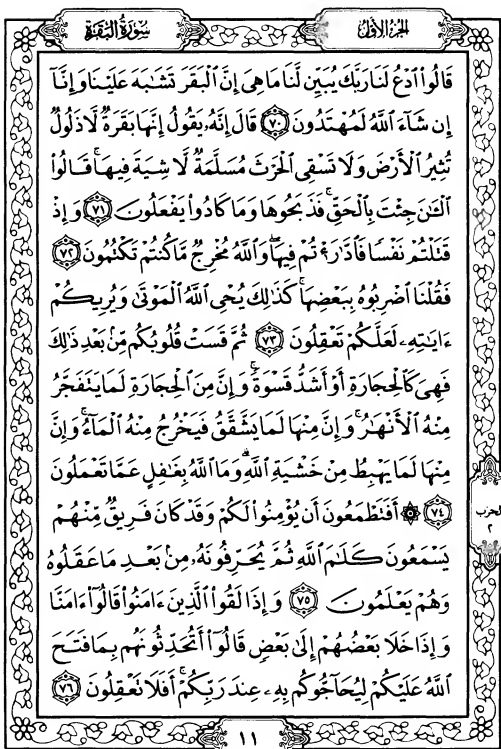 الجزء الأول
سورة البقرة
قَالُوا۟ ٱدْعُ لَنَا رَبَّكَ يُبَيِّن لَّنَا مَا هِىَ إِنَّ ٱلْبَقَرَ تَشَٰبَهَ عَلَيْنَا وَإِنَّآ
إِن شَآءَ ٱللَّهُ لَمُهْتَدُونَ ٧٠ قَالَ إِنَّهُۥ يَقُولُ إِنَّهَا بَقَرَةٌ لَّا ذَلُولٌ
تُثِيرُ ٱلْأَرْضَ وَلَا تَسْقِى ٱلْحَرْثَ مُسَلَّمَةٌ لَّا شِيَةَ فِيهَا ۚ قَالُوا۟
ٱلْـَٰٔنَ جِئْتَ بِٱلْحَقِّ ۚ فَذَبَحُوهَا وَمَا كَادُوا۟ يَفْعَلُونَ ٧١ وَإِذْ
قَتَلْتُمْ نَفْسًا فَٱدَّٰرَْٰٔتُمْ فِيهَا ۖ وَٱللَّهُ مُخْرِجٌ مَّا كُنتُمْ تَكْتُمُونَ ٧٢
فَقُلْنَا ٱضْرِبُوهُ بِبَعْضِهَا ۚ كَذَٰلِكَ يُحْىِ ٱللَّهُ ٱلْمَوْتَىٰ وَيُرِيكُمْ
ءَايَٰتِهِۦ لَعَلَّكُمْ تَعْقِلُونَ ٧٣ ثُمَّ قَسَتْ قُلُوبُكُم مِّنۢ بَعْدِ ذَٰلِكَ
فَهِىَ كَٱلْحِجَارَةِ أَوْ أَشَدُّ قَسْوَةً ۚ وَإِنَّ مِنَ ٱلْحِجَارَةِ لَمَا يَتَفَجَّرُ
مِنْهُ ٱلْأَنْهَٰرُ ۚ وَإِنَّ مِنْهَا لَمَا يَشَّقَّقُ فَيَخْرُجُ مِنْهُ ٱلْمَآءُ ۚ وَإِنَّ
مِنْهَا لَمَا يَهْبِطُ مِنْ خَشْيَةِ ٱللَّهِ ۗ وَمَا ٱللَّهُ بِغَٰفِلٍ عَمَّا تَعْمَلُونَ
٧٤ ۞ أَفَتَطْمَعُونَ أَن يُؤْمِنُوا۟ لَكُمْ وَقَدْ كَانَ فَرِيقٌ مِّنْهُمْ
يَسْمَعُونَ كَلَٰمَ ٱللَّهِ ثُمَّ يُحَرِّفُونَهُۥ مِنۢ بَعْدِ مَا عَقَلُوهُ
وَهُمْ يَعْلَمُونَ ٧٥ وَإِذَا لَقُوا۟ ٱلَّذِينَ ءَامَنُوا۟ قَالُوٓا۟ ءَامَنَّا
وَإِذَا خَلَا بَعْضُهُمْ إِلَىٰ بَعْضٍ قَالُوٓا۟ أَتُحَدِّثُونَهُم بِمَا فَتَحَ
ٱللَّهُ عَلَيْكُمْ لِيُحَآجُّوكُم بِهِۦ عِندَ رَبِّكُمْ ۚ أَفَلَا تَعْقِلُونَ ٧٦
الحزب
٢
١١